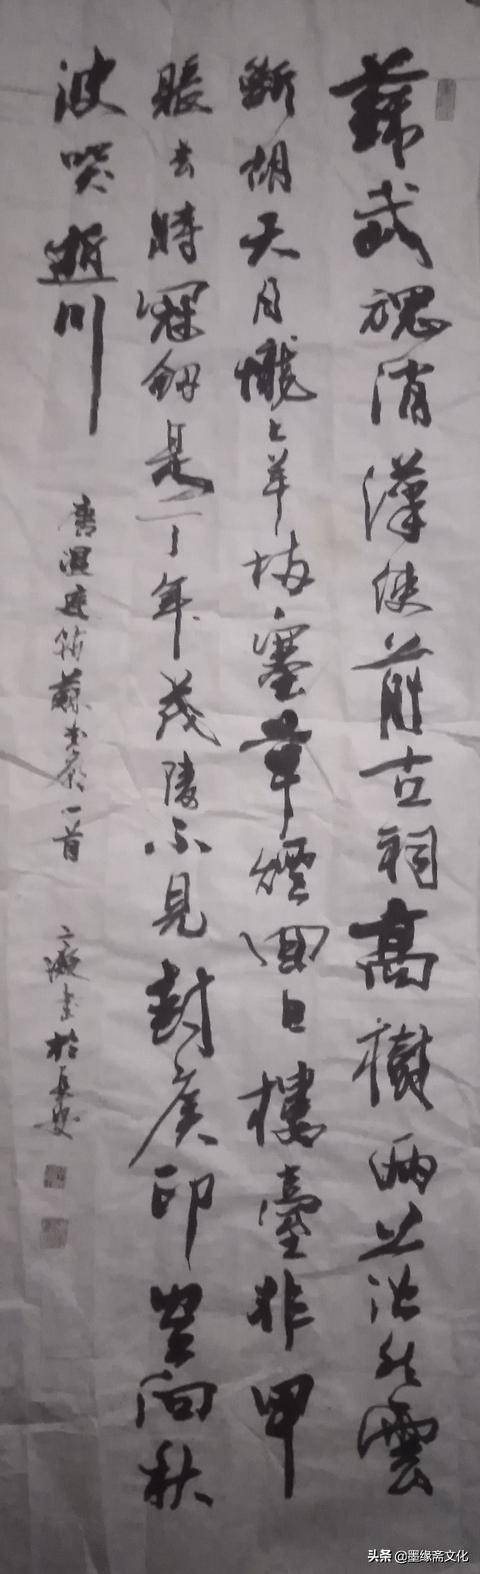 蘇武魂消漢使前古祠高樹兩茫然雲
斷胡天月隴上羊歸塞草煙回日樓臺非甲
帳去時冠劍是丁年茂陵不見封侯印空向秋
波哭逝川
唐溫庭筠蘇武廟一首 凝書於長安
头条 @墨缘斋文化